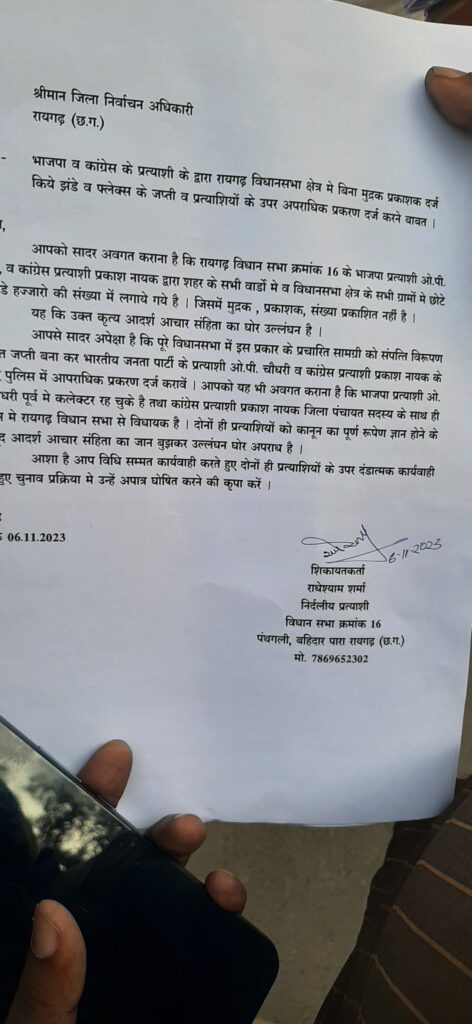 श्रीमान जिला निर्वाचन अधिकारी
रायगढ़ (छ.ग.)
- भाजपा व कांग्रेस के प्रत्याशी के द्वारा रायगढ़ विधानसभा क्षेत्र मे बिना मुद्रक प्रकाशक दर्ज
किये झंडे व फ्लेक्स के जप्ती व प्रत्याशियों के उपर अपराधिक प्रकरण दर्ज करने बाबत ।
आपको सादर अवगत कराना है कि रायगढ़ विधान सभा क्रमांक 16 के भाजपा प्रत्याशी ओ.पी.
, व कांग्रेस प्रत्याशी प्रकाश नायक द्वारा शहर के सभी वार्डो मे व विधानसभा क्षेत्र के सभी ग्रामो मे छोटे
हज्जारो की संख्या में लगाये गये है । जिसमें मुद्रक , प्रकाशक, संख्या प्रकाशित नहीं है ।
यह कि उक्त कृत्य आदर्श आचार संहिता का घोर उल्लंघन है ।
आपसे सादर अपेक्षा है कि पूरे विधानसभा में इस प्रकार के प्रचारित सामाग्री को संपत्ति विरूपण
जप्ती बना कर भारतीय जनता पार्टी के प्रत्याशी ओ.पी. चौधरी व कांग्रेस प्रत्याशी प्रकाश नायक के
पुलिस में आपराधिक प्रकरण दर्ज करावें । आपको यह भी अवगत कराना है कि भाजपा प्रत्याशी ओ.
पूर्व मे कलेक्टर रह चुके है तथा कांग्रेस प्रत्याशी प्रकाश नायक जिला पंचायत सदस्य के साथ ही
मे रायगढ़ विधान सभा से विधायक है । दोनों ही प्रत्याशियों को कानून का पूर्ण रूपेण ज्ञान होने के
आदर्श आचार संहिता का जान बुझकर उल्लंघन घोर अपराध है ।
आशा है आप विधि सम्मत कार्यवाही करते हुए दोनों ही प्रत्याशियों के उपर दंडात्मक कार्यवाही
हुए चुनाव प्रक्रिया मे उन्हें अपात्र घोषित करने की कृपा करें ।
06.11.2023
6-11-2023
शिकायतकर्ता
राधेश्याम शर्मा
निर्दलीय प्रत्याशी
विधान सभा क्रमांक 16
पंथगली, बहिदार पारा रायगढ़ (छ.ग.)
मो. 7869652302